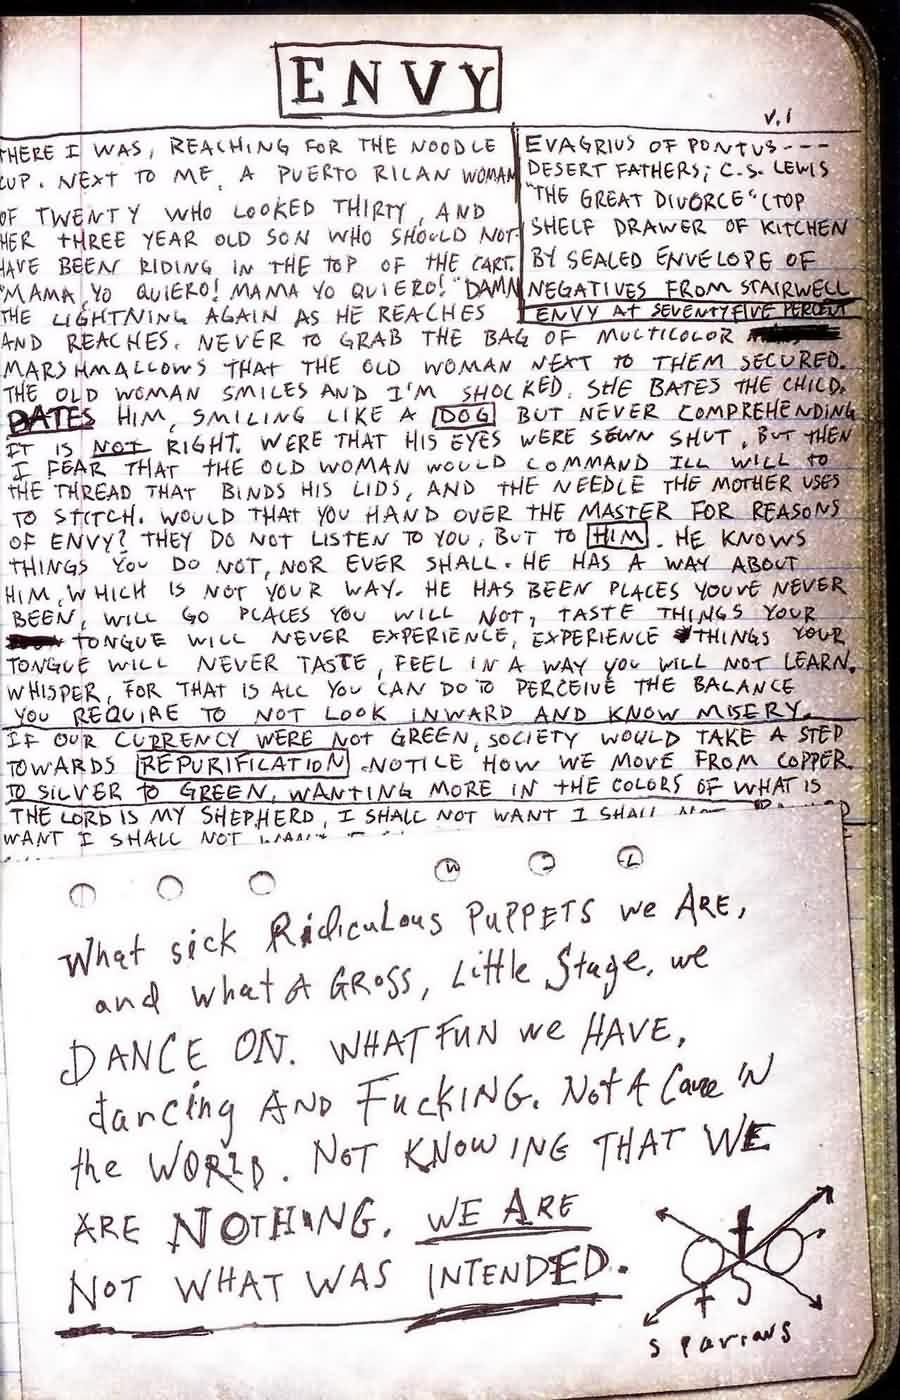 ENVY
V.1
THERE I WAS, REACHING FOR THE NOODLE
CUP. NEXT TO ME, A PUERTO RICAN WOMAN
OF TWENTY WHO LOOKED THIRTY, AND
HER THREE YEAR OLD SON WHO SHOULD NOT
HAVE BEEN RIDING IN THE TOP OF THE CART.
"MAMA, YO QUIERO! MAMA YO QUIERO!" DAMN
THE LIGHTNING AGAIN AS HE REACHES
EVAGRIUS OF PONTUS---
DESERT FATHERS; C.S. LEWIS
"THE GREAT DIVORCE" (TOP
SHELF DRAWER OF KITCHEN
BY SEALED ENVELOPE OF
NEGATIVES FROM STAIRWELL
ENVY AT SEVENTYFIVE PERCENT
AND REACHES. NEVER TO GRAB THE BAG OF MULTICOLOR
MARSHMALLOWS THAT THE OLD WOMAN NEXT TO THEM SECURED.
THE OLD WOMAN SMILES AND I'M SHOCKED. SHE BATES THE CHILD.
BATES HIM, SMILING LIKE A DOG BUT NEVER COMPREHENDING
IT IS NOT RIGHT. WERE THAT HIS EYES WERE SEWN SHUT, BUT THEN
I FEAR THAT THE OLD WOMAN WOULD COMMAND ILL WILL TO
THE THREAD THAT BINDS HIS LIDS, AND THE NEEDLE THE MOTHER USES
TO STITCH. WOULD THAT YOU HAND OVER THE MASTER FOR REASONS
OF ENVY? THEY DO NOT LISTEN TO YOU, BUT TO HIM. HE KNOWS
THINGS YOU DO NOT, NOR EVER SHALL. HE HAS A WAY ABOUT
HIM, WHICH IS NOT YOUR WAY. HE HAS BEEN PLACES YOUVE NEVER
BEEN, WILL GO PLACES YOU WILL NOT, TASTE THINGS YOUR
TONGUE WILL NEVER EXPERIENCE, EXPERIENCE THINGS YOUR
TONGUE WILL NEVER TASTE, FEEL IN A WAY YOU WILL NOT LEARN.
WHISPER, FOR THAT IS ALL YOU CAN DO TO PERCEIVE THE BALANCE
YOU REQUIRE TO NOT LOOK INWARD AND KNOW MISERY.
IF OUR CURRENCY WERE NOT GREEN, SOCIETY WOULD TAKE A STEP
TOWARDS REPURIFICATION. NOTICE HOW WE MOVE FROM COPPER
TO SILVER TO GREEN, WANTING MORE IN THE COLORS OF WHAT IS
THE LORD IS MY SHEPHERD, I SHALL NOT WANT I SHALL NOT
WANT I SHALL NOT WANT
What sick Ridiculous PUPPETS we ARE,
and what A GROSS, Little Stage, we
DANCE ON. WHAT FUN we HAVE,
dancing AND FucKING. Not A Care IN
the WORLD. NOT KNOWING THAT WE
ARE NOTHING. WE ARE
NOT WHAT WAS INTENDED.